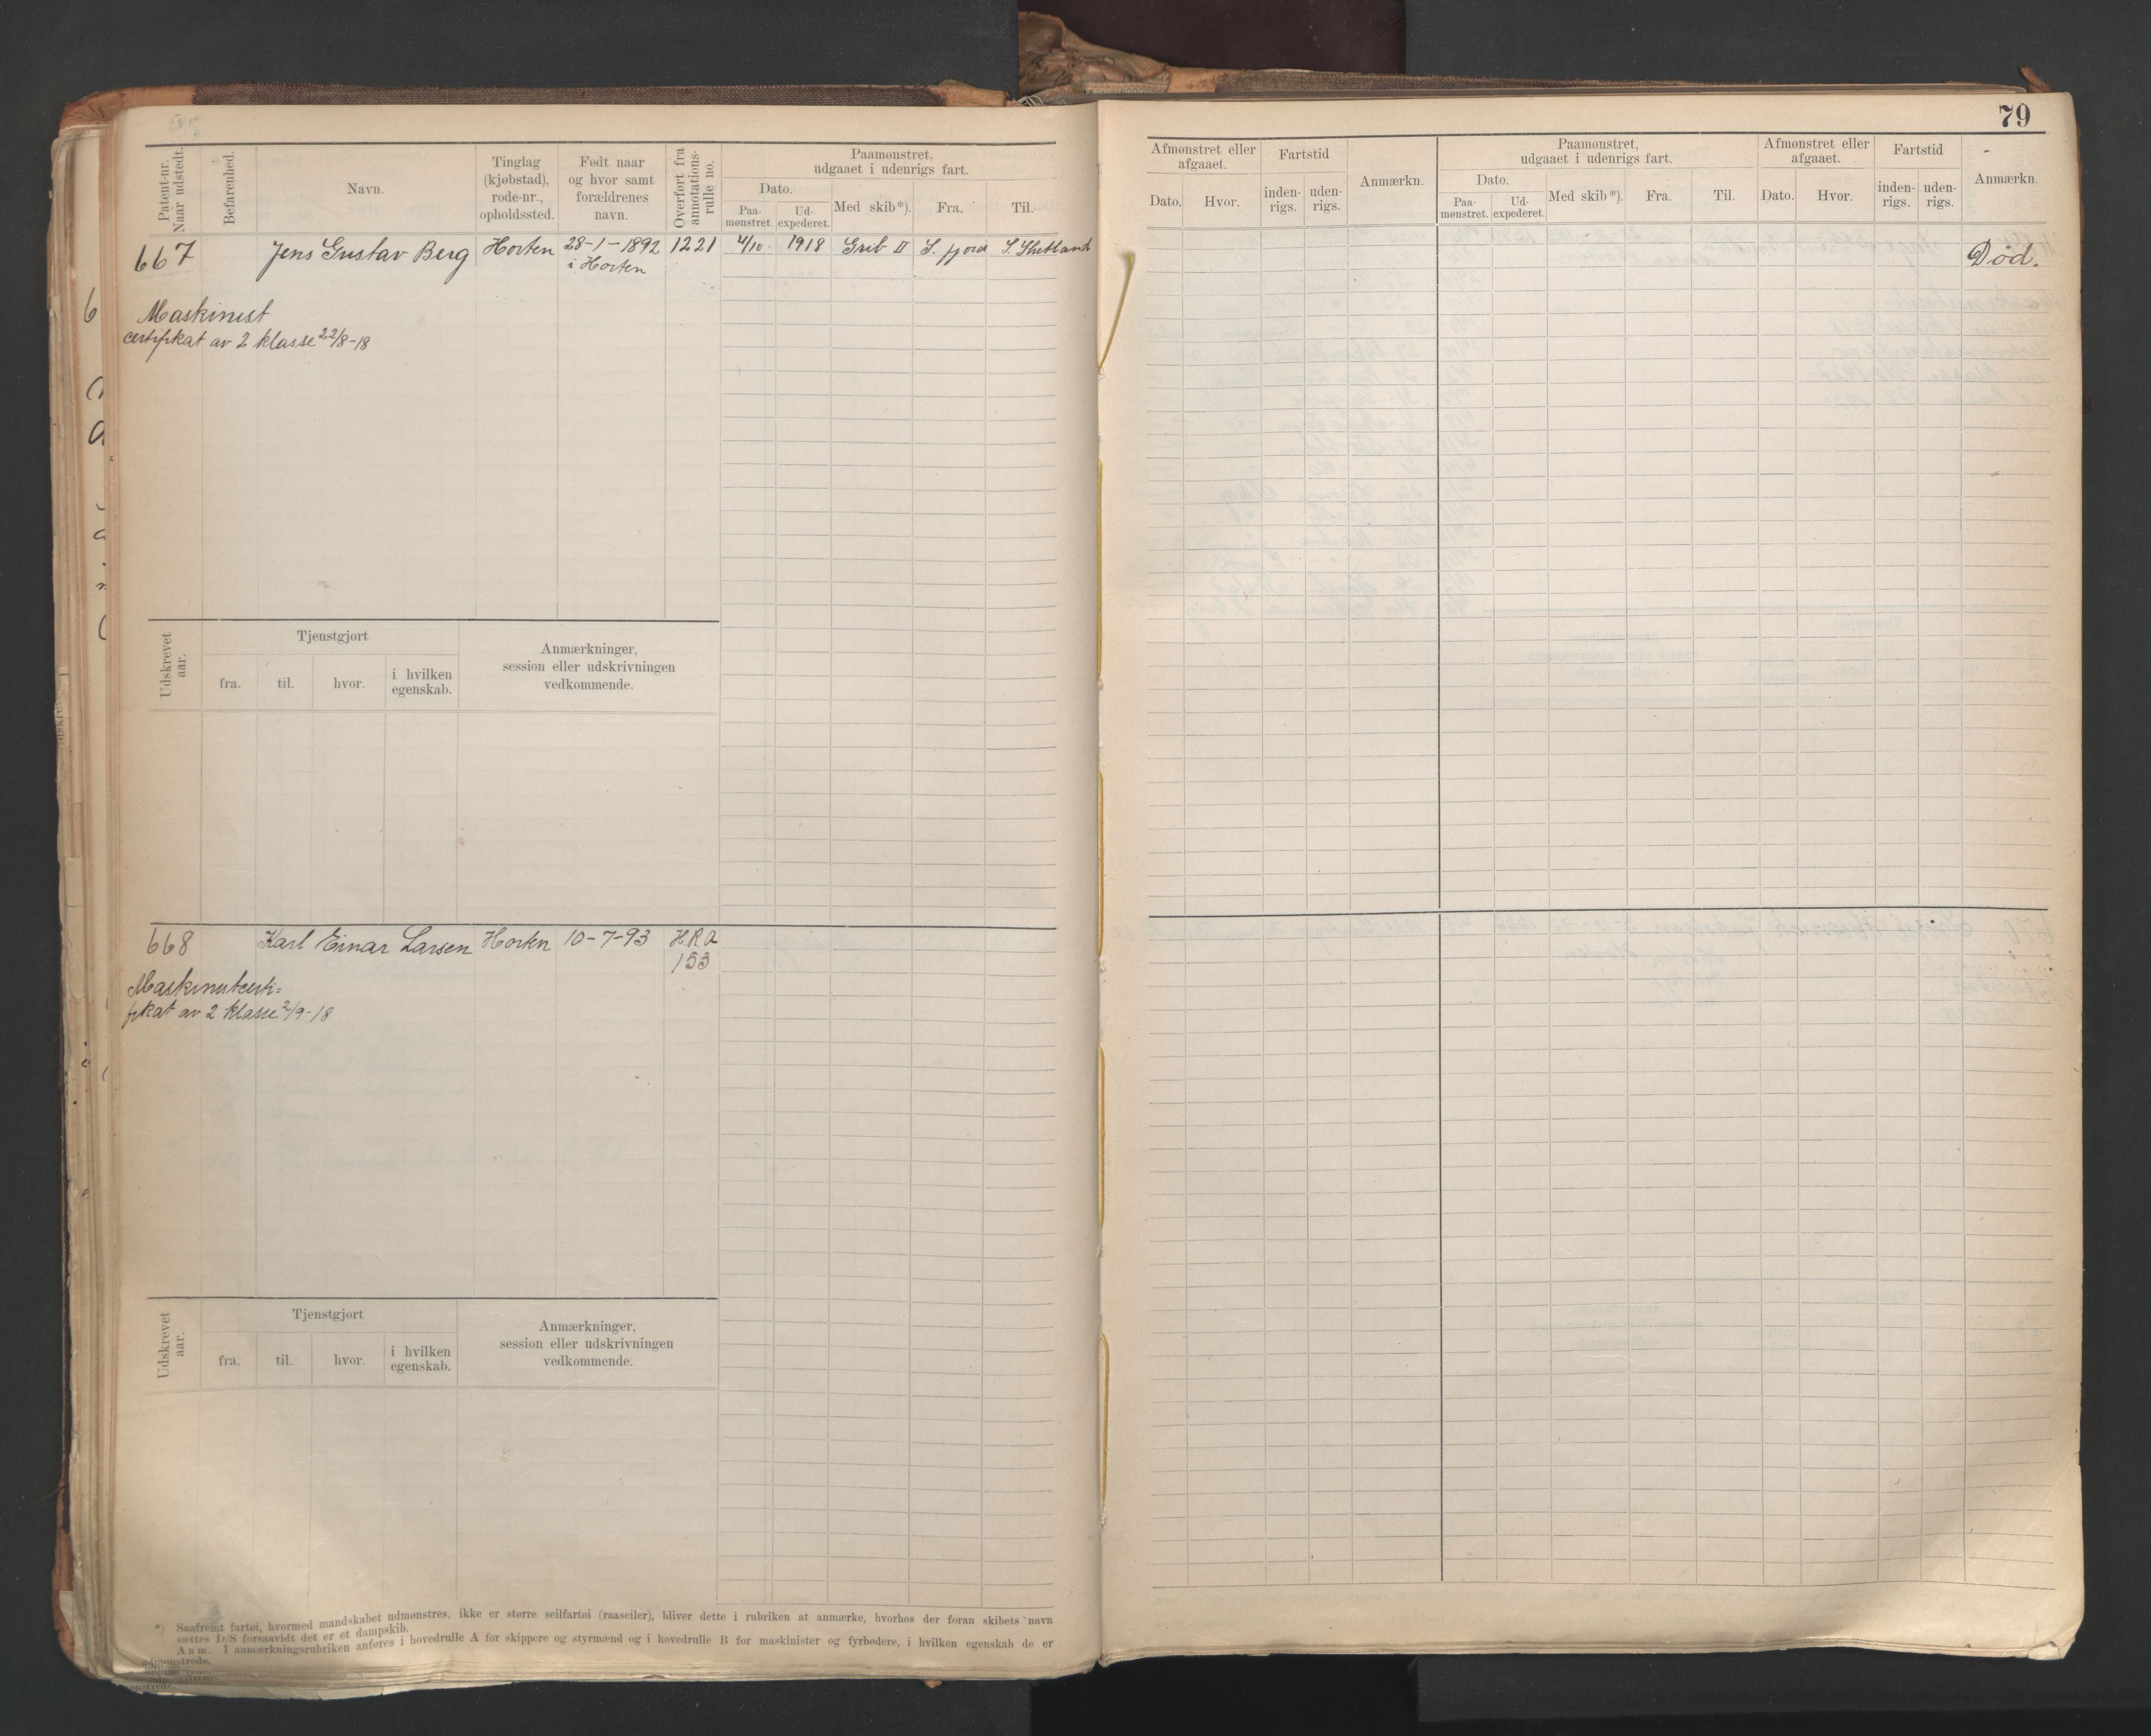 79
Patent-nr. Naar udstedt.
Befarenhed.
Navn.
Tinglag (kjøbstad), rode-nr., opholdssted.
Født naar og hvor samt forældrenes navn.
Overført fra annotations-rulle no.
Paamønstret, udgaaet i udenrigs fart.
Dato.
Paa-mønstret.
Ud-expederet.
Med skib*).
Fra.
Til.
Afmønstret eller afgaaet.
Dato.
Hvor.
Fartstid
inden-rigs.
uden-rigs.
Anmærkn.
Paamønstret, udgaaet i udenrigs fart.
Dato.
Paa-mønstret.
Ud-expederet.
Med skib*).
Fra.
Til.
Afmønstret eller afgaaet.
Dato.
Hvor.
Fartstid
inden-rigs.
uden-rigs.
Anmærkn.
667 Jens Gustav Berg Horten 28-1-1892 1221 4/10. 1918 Grib II S. fjord S. Shetland Død.
i Horten
Maskinist
certifikat av 2 klasse 22/8-18
Udskrevet aar.
Tjenstgjort
fra.
til.
hvor.
i hvilken egenskab.
Anmærkninger, session eller udskrivningen vedkommende.
668 Karl Einar Larsen Horten 10-7-93 H.R.A
153
Maskinistcerti=
fikat av 2 klasse 2/9-18
Udskrevet aar.
Tjenstgjort
fra.
til.
hvor.
i hvilken egenskab.
Anmærkninger, session eller udskrivningen vedkommende.
*) Saafremt fartøi, hvormed mandskabet udmønstres, ikke er større seilfartøi (raaseiler), bliver dette i rubriken at anmærke, hvorhos der foran skibets navn
sættes D/S forsaavidt det er et dampskib.
Anm. I anmærkningsrubriken anføres i hovedrulle A for skippere og styrmænd og i hovedrulle B for maskinister og fyrbødere, i hvilken egenskab de er
udmønstrede.